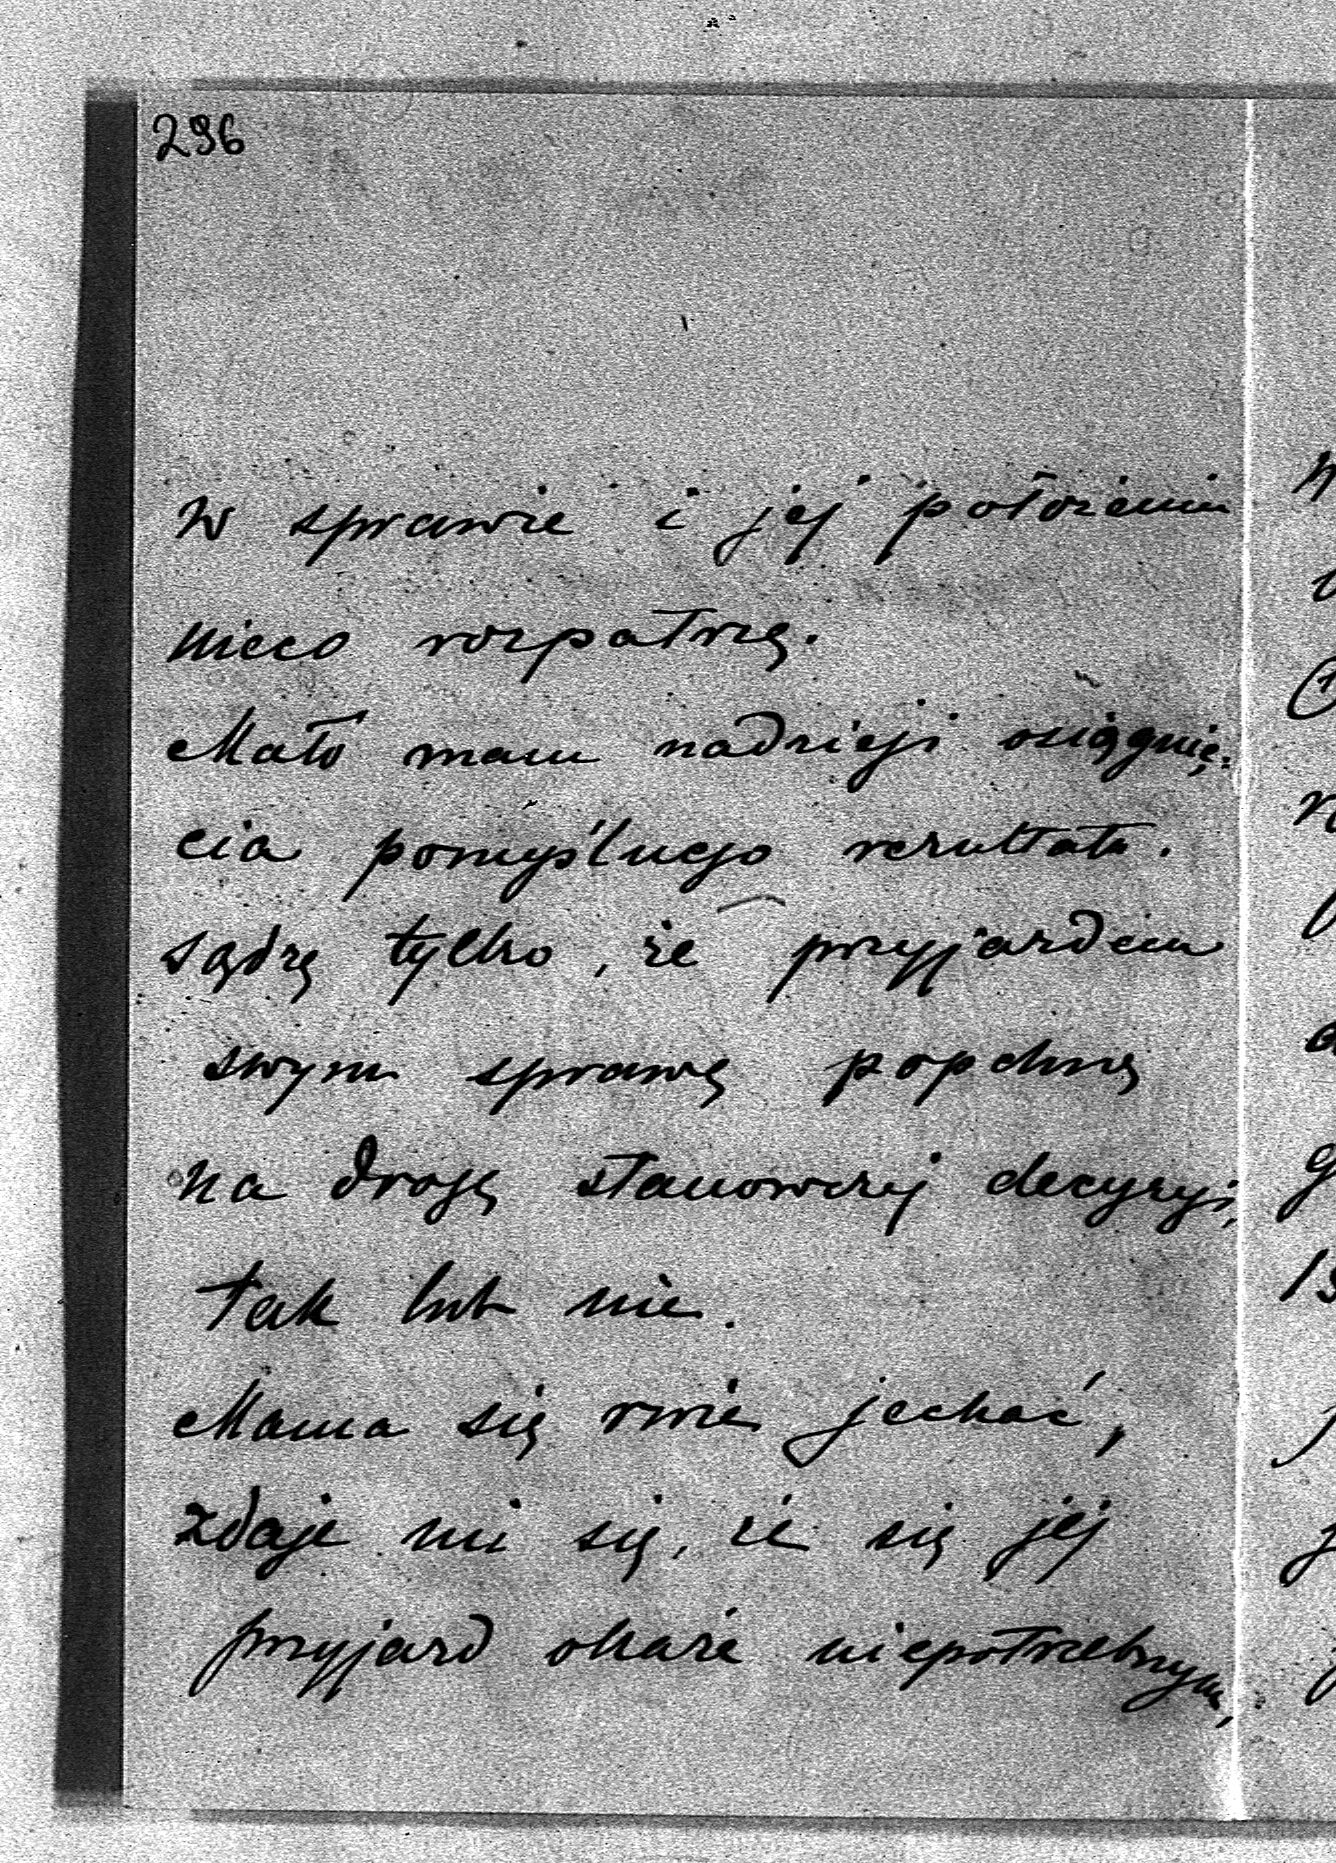 296
w sprawie i jej położeniu
nieco rozpatrzę.
Mało mam nadzieji osiągnię-
cia pomyślnego rezultatu.
sądzę tylko, że przyjazdem
swym sprawę popchnę
na drogę stanowczej decyzyi,
tak lub nie.
Mama się rwie jechać,
zdaje mi się, że się jej
przyjazd okaże niepotrzebnym,